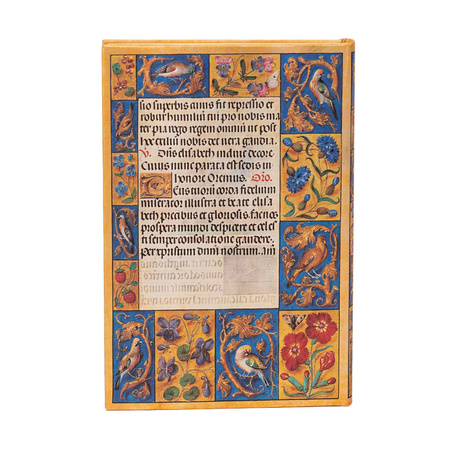 sio superbis auus fit repressio et
robur humilui cui pio nobis ma
ter pia rego regem omniu ut post
hec exiliu nobis det uera gaudia.
V. Dns elisabeth induit decore
Cuius nunc parata est sedis in
honore Oremus. Oro.
corda fidelium
miserator illustra et beate elisa
beth precibus et gloriosis. facnos
prospera mundi despicere et celes
ti semper consolatione gaudere.
per xpistum dnm nostrum. am